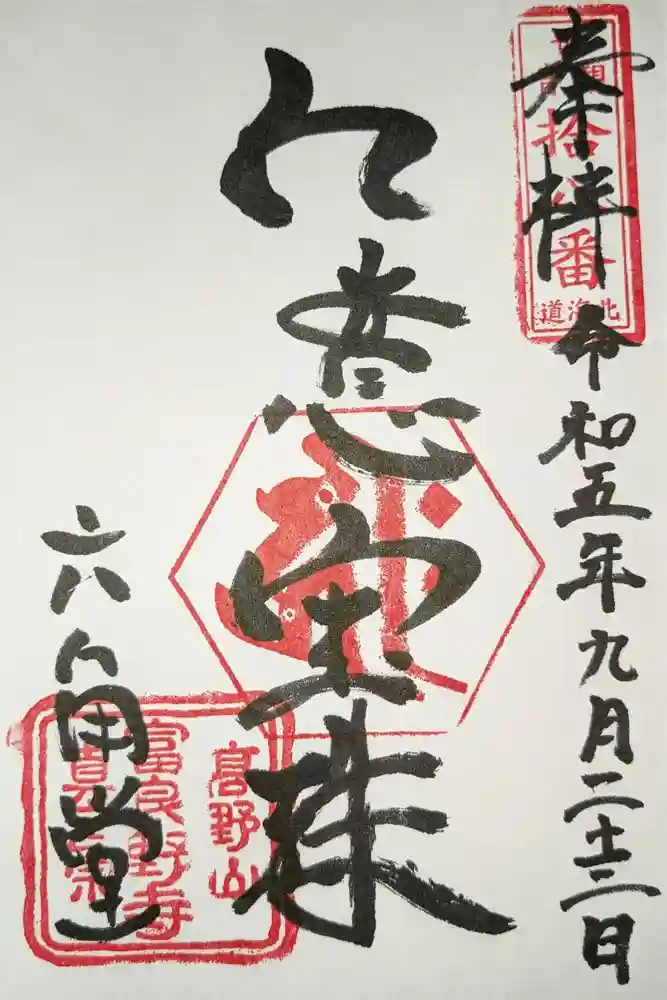 奉拝
拾八番
北海道
令和五年九月二十三日
如意宝珠
六角堂
高野山
富良野寺